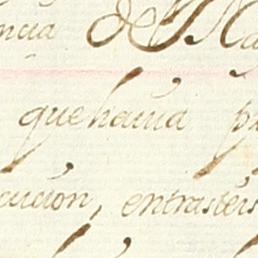 ncia de
que havia
cucion, entrasteis